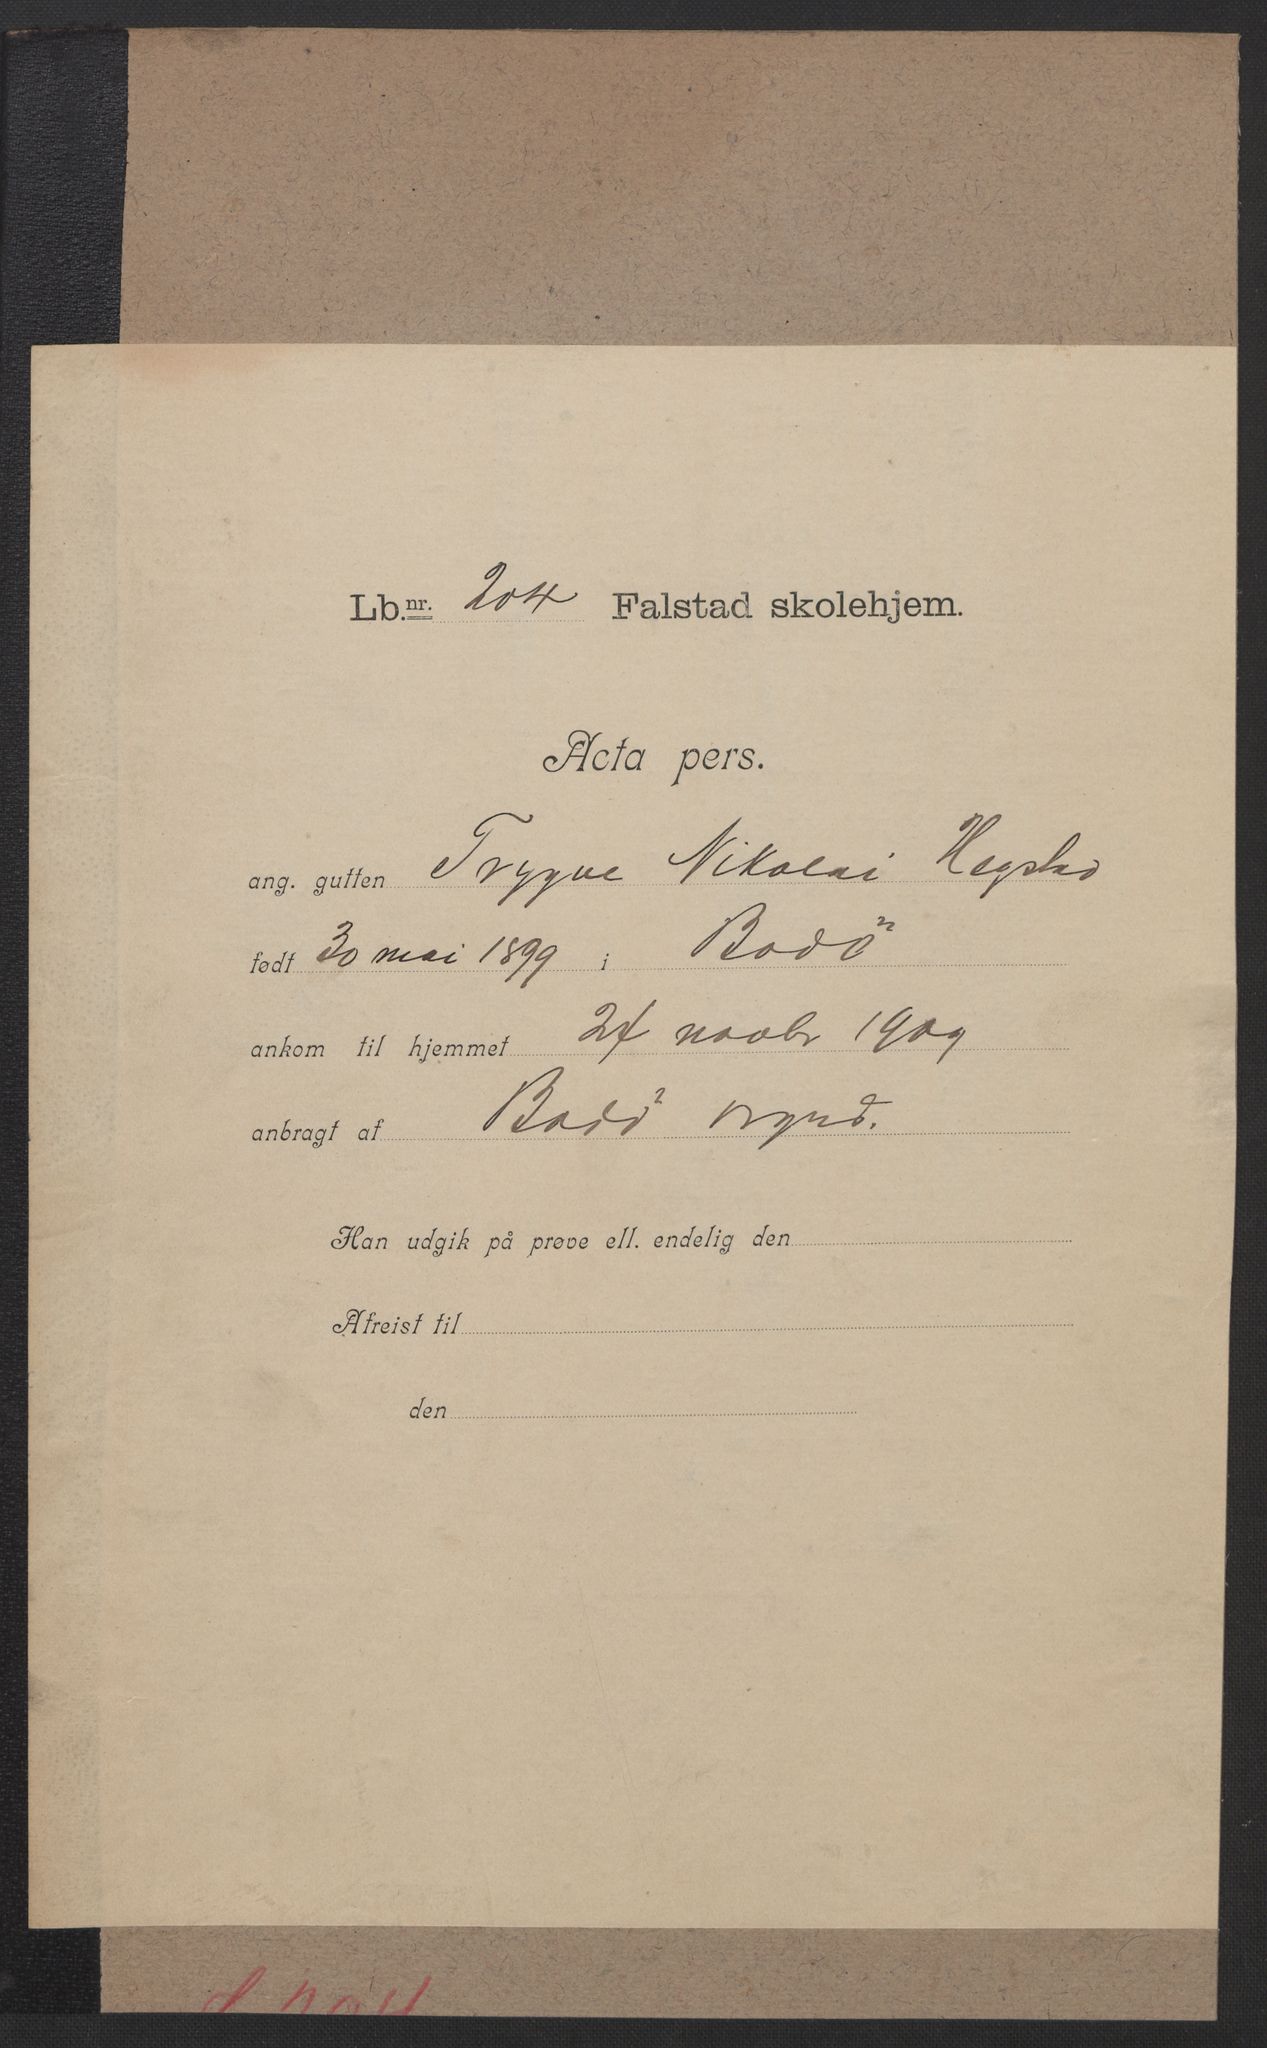 Lb.nr. 204 Falstad skolehjem.
Acta pers.
ang. gutten Trygve Nikolai Hegstad
født 30 mai 1899 i Bodö
ankom til hjemmet 24 novbr 1909
anbragt af Bodö vrgrd.
Han udgik på prøve ell. endelig den
Afreist til
den
204